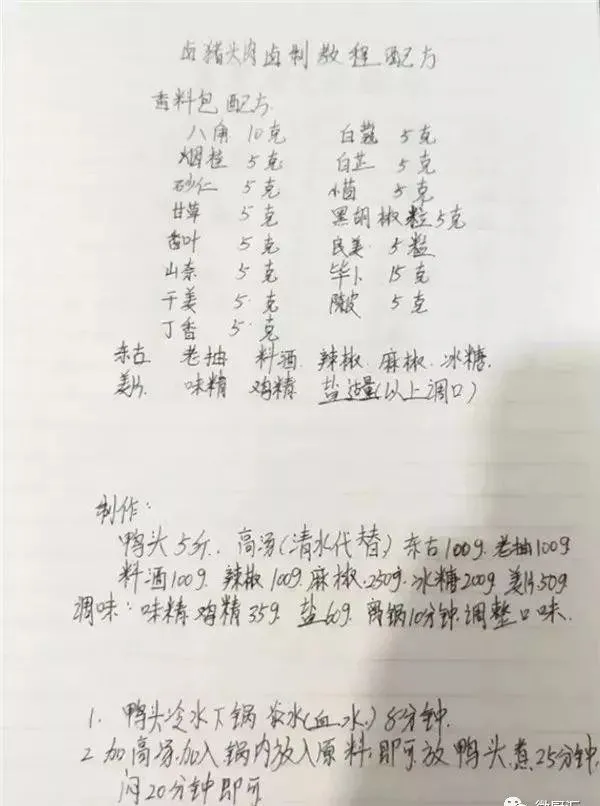 卤猪头肉卤制教程配方
香料包配方
八角 10克 白蔻 5克
烟桂 5克 白芷 5克
砂仁 5克 小茴 5克
甘草 5克 黑胡椒粒5克
香叶 5克 良姜 5粒
山奈 5克 毕卜 15克
干姜 5克 陈皮 5克
丁香 5克
东古 老抽 料酒 辣椒 麻椒 冰糖
姜片 味精 鸡精 盐适量(以上调口)
制作:
鸭头5斤. 高汤(清水代替)东古100g 老抽100g
料酒100g 辣椒100g 麻椒250g 冰糖200g 姜片50g
调味: 味精 鸡精35g 盐60g 离锅10分钟调整口味.
1. 鸭头冷水下锅 汆水(血水)8分钟.
2 加高汤,加入锅内放入原料,即可放鸭头煮25分钟,
闷20分钟即可
微厨汇